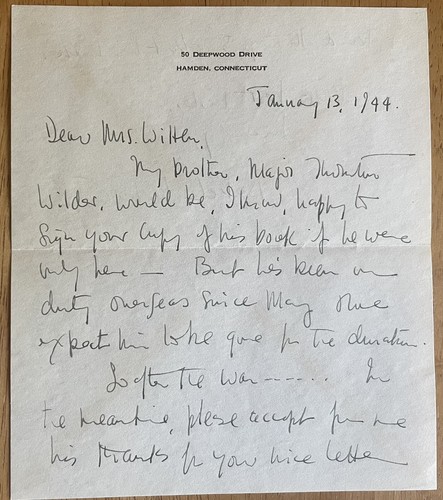 50 DEEPWOOD DRIVE
HAMDEN, CONNECTICUT
January 13, 1944.
Dear Mrs. Witten,
My brother, Major Thornton
Wilder, would be, I know, happy to
sign your copy of his book if he were
only here — But he's been on
duty overseas since May and we
expect him to be gone for the duration.
So after the war ------. In
the meantime, please accept from me
his thanks for your nice letter